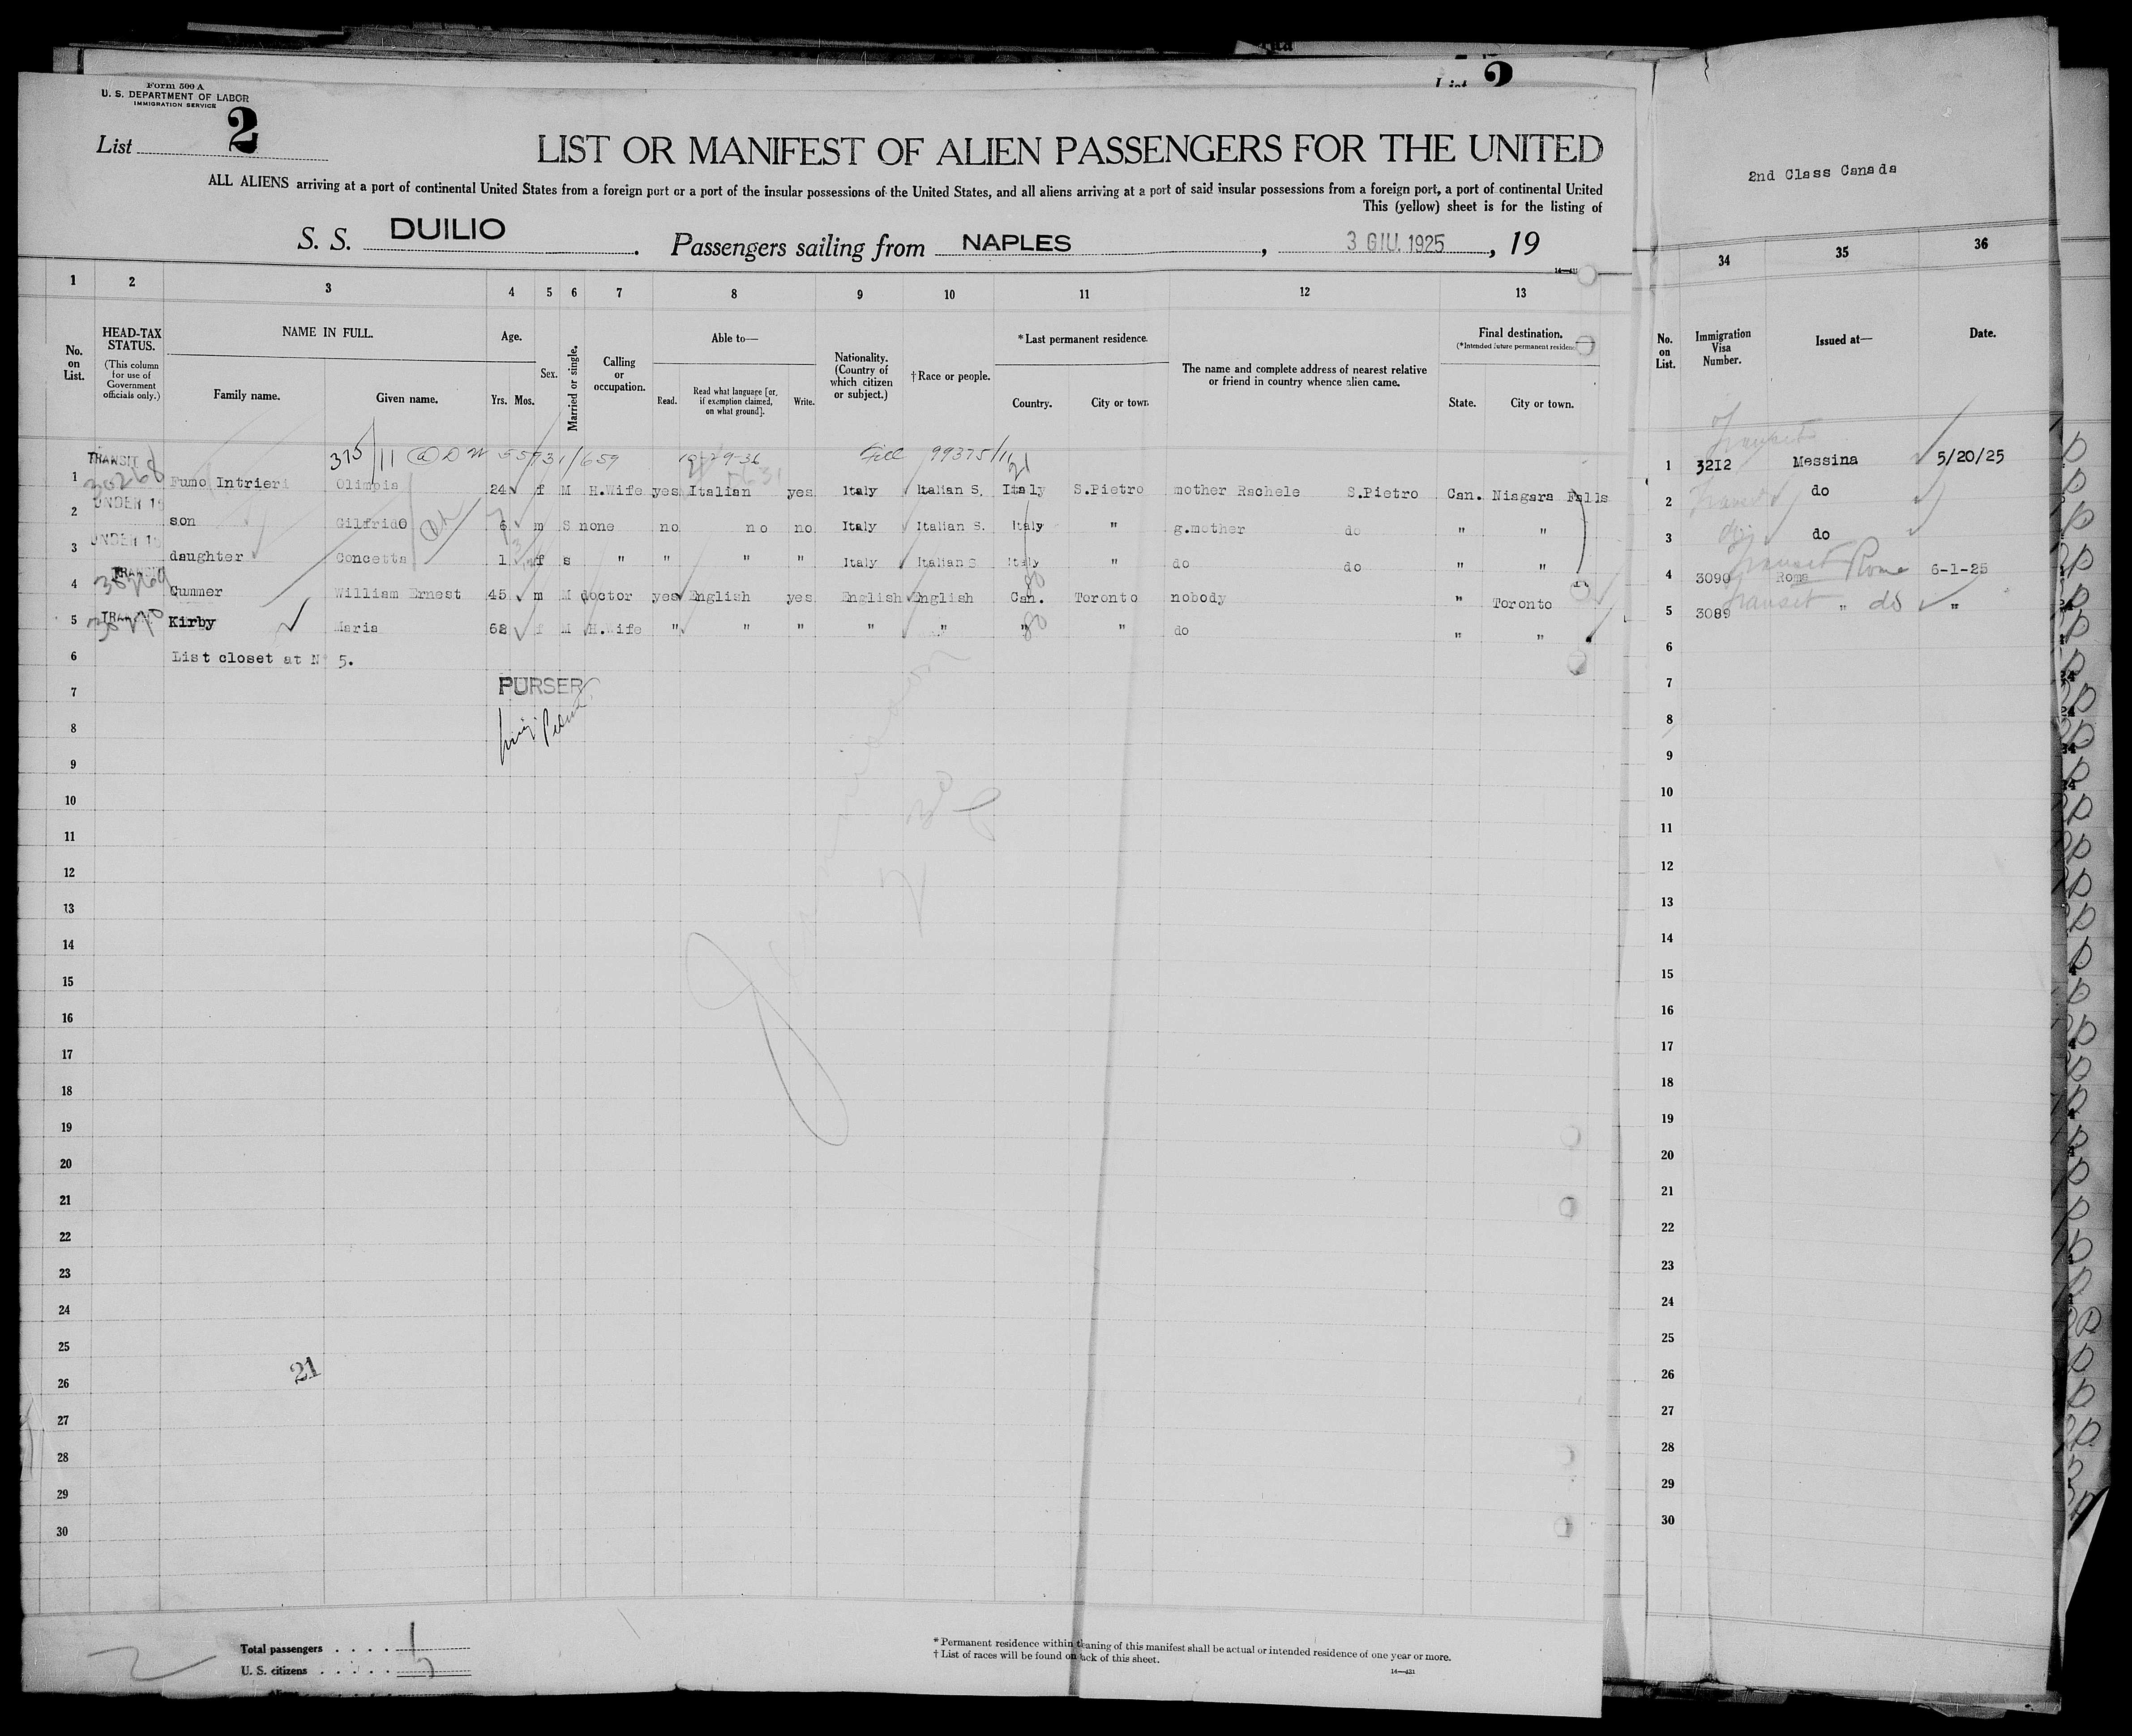 List 2
Form 500 A
U. S. DEPARTMENT OF LABOR
IMMIGRATION SERVICE
List 2
LIST OR MANIFEST OF ALIEN PASSENGERS FOR THE UNITED
ALL ALIENS arriving at a port of continental United States from a foreign port or a port of the insular possessions of the United States, and all aliens arriving at a port of said insular possessions from a foreign port, a port of continental United
This (yellow) sheet is for the listing of
S. S. DUILIO. Passengers sailing from NAPLES, 3 GIU. 1925, 19
1 2 3 4 5 6 7 8 9 10 11 12 13
No. on List. HEAD-TAX STATUS. (This column for use of Government officials only.) NAME IN FULL. Family name. Given name. Age. Yrs. Mos. Sex. Married or single. Calling or occupation. Able to— Read. Read what language [or, if exemption claimed, on what ground]. Write. Nationality. (Country of which citizen or subject.) †Race or people. *Last permanent residence. Country. City or town. The name and complete address of nearest relative or friend in country whence alien came. Final destination. (*Intended future permanent residence) State. City or town.
375/11 55931/659 10-29-36 99375/11
1 TRANSIT 30268 Fumo Intrieri Olimpia 24 f M H.Wife yes Italian yes Italy Italian S. Italy S.Pietro mother Rachele S.Pietro Can. Niagara Falls
2 UNDER 16 son Gilfrido 6 m S none no no no Italy Italian S. Italy " g.mother do " "
3 UNDER 16 daughter Concetta 1 f s " " " " Italy Italian S Italy " do do " "
4 TRANSIT 30269 Cummer William Ernest 45 m M doctor yes English yes English English Can. Toronto nobody " Toronto
5 TRANSIT 30270 Kirby Maria 62 f M H.Wife " " " " " " " do " "
6 List closet at N° 5.
7 PURSER
8
9
10
11
12
13
14
15
16
17
18
19
20
21
22
23
24
25
21
26
27
28
29
30
Total passengers . . . . 5
U. S. citizens . . . . .
* Permanent residence within meaning of this manifest shall be actual or intended residence of one year or more.
† List of races will be found on back of this sheet.
14—421
2nd Class Canada
34 35 36
No. on List. Immigration Visa Number. Issued at— Date.
Transit
1 3212 Messina 5/20/25
2 Transit do
3 do do
4 Transit 3090 Rome Rome 6-1-25
5 Transit 3089 " do "
6
7
8
9
10
11
12
13
14
15
16
17
18
19
20
21
22
23
24
25
26
27
28
29
30